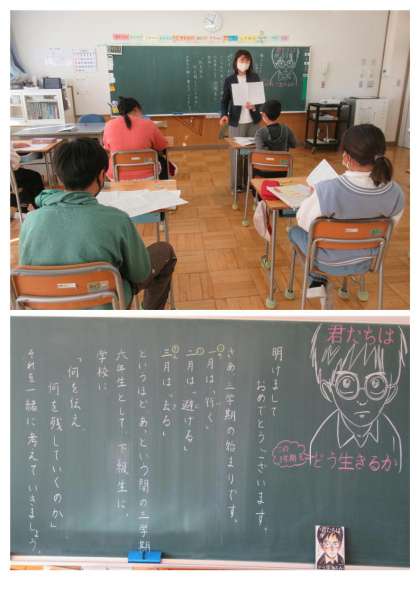 君たちは
この3学期を
どう生きるか
明けまして
おめでとうございます。
さあ、三学期の始まりです。
一月は「行く」
二月は「逃げる」
三月は「去る」
というほどあっという間の三学期
六年生として、下級生に、
学校に
「何を伝え
何を残していくのか」
それを一緒に考えていきましょう。
君たちは